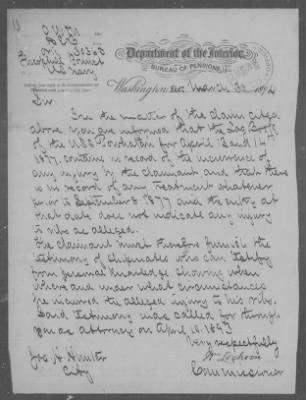 Department of the Interior,
BUREAU OF PENSIONS
Washington, D.C. March 30, 1894
Sir:
In the matter of the claim cited
above you are informed that the Log Book
of the U.S.S. Powhatan for April 13 and 14
1877, contains no record of the incurrence of
any injury by the claimant and that there
is no record of any treatment whatever
prior to September 8 1877 and the entry at
that date does not indicate any injury
to ribs as alleged.
The claimant must therefore furnish the
testimony of shipmates who can testify
from personal knowledge showing when
where and under what circumstances
he incurred the alleged injury to his ribs.
Said testimony was called for through
you as attorney on April 10, 1893
Very respectfully
Wm Lochren
Commissioner
Jos. H. Hunter
City